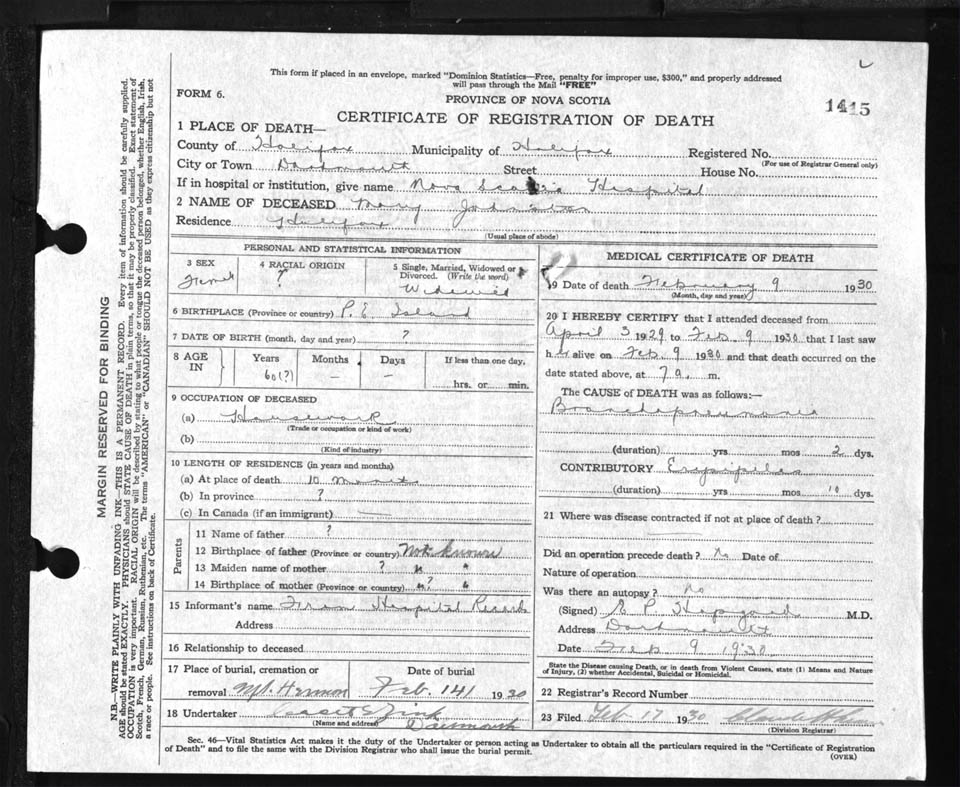 This form if placed in an envelope, marked "Dominion Statistics—Free, penalty for improper use, $300," and properly addressed
will pass through the Mail "FREE"
FORM 6.
PROVINCE OF NOVA SCOTIA
1415
CERTIFICATE OF REGISTRATION OF DEATH
1 PLACE OF DEATH—
County of Halifax Municipality of Halifax Registered No.
(For use of Registrar General only)
City or Town Dartmouth Street House No.
If in hospital or institution, give name Nova Scotia Hospital
2 NAME OF DECEASED Mary Johnston
Residence Halifax
(Usual place of abode)
PERSONAL AND STATISTICAL INFORMATION
3 SEX
Female
4 RACIAL ORIGIN
?
5 Single, Married, Widowed or Divorced. (Write the word)
Widowed
6 BIRTHPLACE (Province or country) P. E. Island
7 DATE OF BIRTH (month, day and year) ?
8 AGE IN
Years Months Days If less than one day,
60(?) — — hrs. or min.
9 OCCUPATION OF DECEASED
(a) Housework
(Trade or occupation or kind of work)
(b)
(Kind of industry)
10 LENGTH OF RESIDENCE (in years and months)
(a) At place of death 10 months
(b) In province ?
(c) In Canada (if an immigrant) —
Parents
11 Name of father ?
12 Birthplace of father (Province or country) Not known
13 Maiden name of mother ? " "
14 Birthplace of mother (Province or country) " ? "
15 Informant's name From Hospital Records
Address
16 Relationship to deceased
17 Place of burial, cremation or removal Mt. Hermon
Date of burial
Feb. 14 1930
18 Undertaker Zink
(Name and address) Dartmouth
MEDICAL CERTIFICATE OF DEATH
19 Date of death February 9 1930
(Month, day and year)
20 I HEREBY CERTIFY that I attended deceased from
April 3 1929 to Feb. 9 1930 that I last saw
her alive on Feb. 9 1930 and that death occurred on the
date stated above, at 7 a. m.
The CAUSE of DEATH was as follows:—
Bronchopneumonia
(duration) yrs mos 2 dys.
CONTRIBUTORY Erysipelas
(duration) yrs mos 10 dys.
21 Where was disease contracted if not at place of death?
Did an operation precede death? No Date of
Nature of operation
Was there an autopsy? No
(Signed) E P M.D.
Address Dartmouth
Date Feb 9 1930
State the Disease causing Death, or in death from Violent Causes, state (1) Means and Nature
of Injury, (2) whether Accidental, Suicidal or Homicidal.
22 Registrar's Record Number
23 Filed Feb 17 1930
(Division Registrar)
Sec. 46—Vital Statistics Act makes it the duty of the Undertaker or person acting as Undertaker to obtain all the particulars required in the "Certificate of Registration
of Death" and to file the same with the Division Registrar who shall issue the burial permit.
(OVER)
MARGIN RESERVED FOR BINDING
N.B.—WRITE PLAINLY WITH UNFADING INK—THIS IS A PERMANENT RECORD. Every item of information should be carefully supplied.
AGE should be stated EXACTLY. PHYSICIANS should STATE CAUSE OF DEATH in plain terms, so that it may be properly classified. Exact statement of
OCCUPATION is very important. RACIAL ORIGIN will be described by stating to what people or tongue the deceased person belonged, whether English, Irish,
Scotch, French, German, Russian, Ruthenian, etc. The terms "AMERICAN" or "CANADIAN" SHOULD NOT BE USED as they express citizenship but not
a race or people. See instructions on back of Certificate.